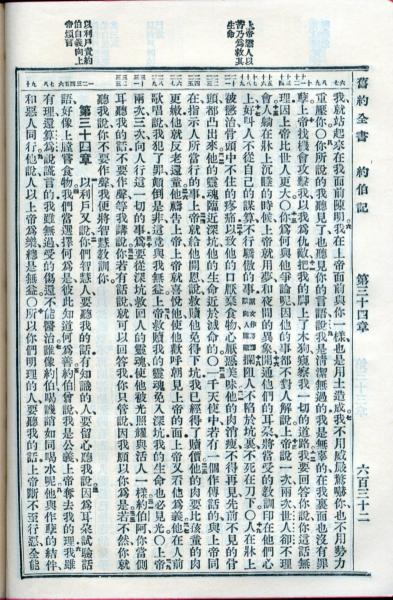 舊約全書 約伯記 第三十四章 六百三十二
上帝懲人以
苦乃為救其
生命
以利戶責約
伯自義向上
帝煩言
我就站起來在我面前陳明我在上帝面前與你一樣也是用土造成我不用威嚴驚嚇你也不用勢力
重壓你〇你所說的我聽見了也聽見你的言語說我是清潔無過的我是無辜的在我裏面也沒有罪
孽上帝找機會攻擊我以我為仇敵把我的脚上了木狗窺察我一切的道路我要回答你說你這話無
理因上帝比世人更大〇你為何與他爭論呢因他的事都不對人解說上帝說一次兩次世人卻不理
會人躺在牀上沉睡的時候上帝就用夢和夜間的異象開通他們的耳朶將當受的教訓印在他們心
上好叫人不從自己的謀算不行驕傲的事攔阻人不陷於坑裏不死在刀下〇人在牀上
被懲治骨頭中不住的疼痛以致他的口厭棄食物心厭惡美味他的肉消瘦不得再見先前不見的骨
頭都凸出來他的靈魂臨近深坑他的生命近於滅命的〇一千天使中若有一個作傳話的與上帝同
在指示人所當行的事上帝就給他開恩說救贖他免得下坑我已經得了贖價他的肉要比孩童的肉
更嫩他就反老還童他禱告上帝上帝就喜悅他使他歡呼朝見上帝的面上帝又看他為義他在人前
歌唱說我犯了罪顛倒是非這竟與我無益上帝救贖我的靈魂免入深坑我的生命也必見光〇上帝
兩次三次向人行這一切的事為要從深坑救回人的靈魂使他被光照耀與活人一樣約伯阿你當側
耳聽我的話不要作聲等我講說你若有話說就可以回答我你只管說因我願以你為是若不然你就
聽我說你不要作聲我便將智慧教訓你
第三十四章 以利戶又說你們智慧人要聽我的話有知識的人要留心聽我說因為耳朶試驗話
語好像上膛嘗食物我們當選擇何為是彼此知道何為善約伯曾說我是公義上帝奪去我的理我雖
有理還算為說謊言的我雖無過受的傷還不能醫治誰像約伯喝譏誚如同喝水呢他與作孽的結伴
和惡人同行他說人以上帝為樂總是無益〇所以你們明理的人要聽我的話上帝斷不至行惡全能